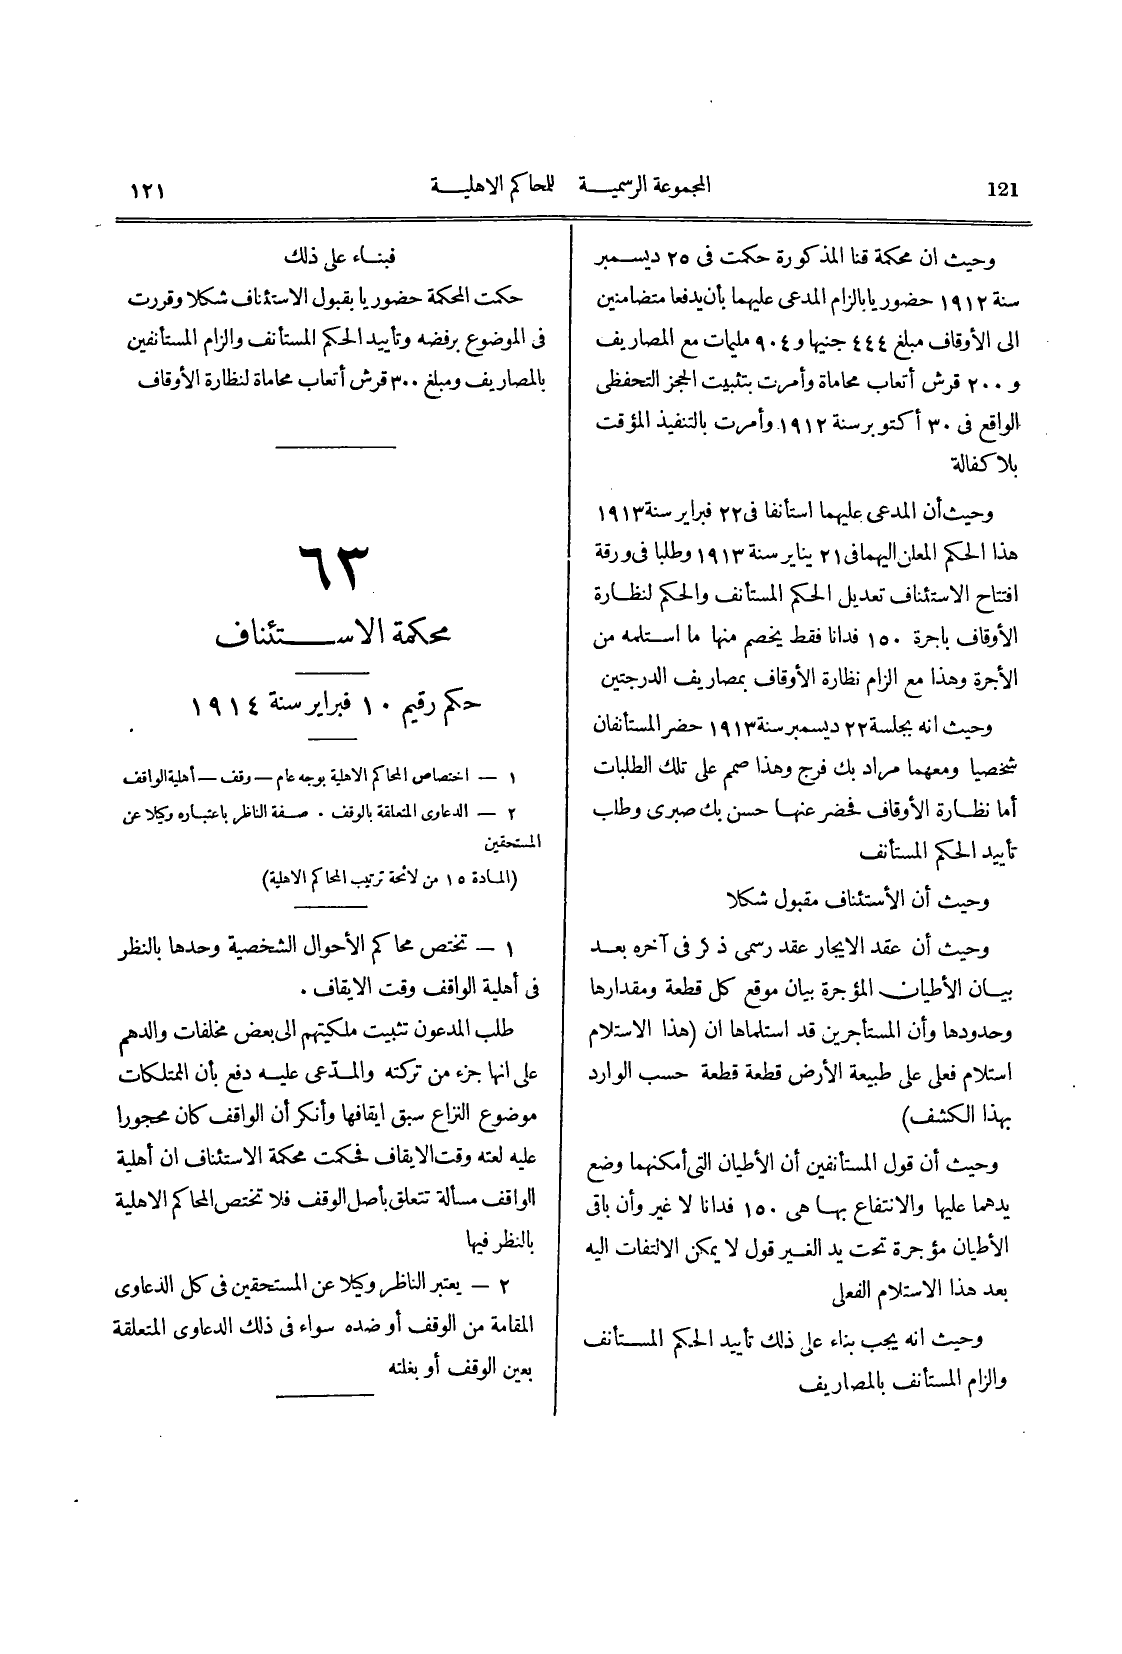 121 المجموعة الرسمية للمحاكم الاهلية ١٢١
وحيث ان محكمة قنا المذكورة حكمت فى ٢٥ ديسمبر
سنة ١٩١٢ حضوريا بالزام المدعى عليهما بأن يدفعا متضامنين
الى الأوقاف مبلغ ٤٤٤ جنيها و ٩٠٤ مليمات مع المصاريف
و ٢٠٠ قرش أتعاب محاماة وأمرت بتثبيت الحجز التحفظى
الواقع فى ٣٠ أكتوبر سنة ١٩١٢ وأمرت بالتنفيذ المؤقت
بلا كفالة
وحيث أن المدعى عليهما استأنفا فى ٢٢ فبراير سنة ١٩١٣
هذا الحكم المعلن اليهما فى ٢١ يناير سنة ١٩١٣ وطلبا فى ورقة
افتتاح الاستئناف تعديل الحكم المستأنف والحكم لنظارة
الأوقاف باجرة ١٥٠ فدانا فقط يخصم منها ما استلمه من
الأجرة وهذا مع الزام نظارة الأوقاف بمصاريف الدرجتين
وحيث انه بجلسة ٢٢ ديسمبر سنة ١٩١٣ حضر المستأنفان
شخصيا ومعهما مراد بك فرج وهذا صمم على تلك الطلبات
أما نظارة الأوقاف فحضر عنها حسن بك صبرى وطلب
تأييد الحكم المستأنف
وحيث أن الأستئناف مقبول شكلا
وحيث أن عقد الايجار عقد رسمى ذكر فى آخره بعد
بيان الأطيان المؤجرة بيان موقع كل قطعة ومقدارها
وحدودها وأن المستأجرين قد استلماها ان (هذا الاستلام
استلام فعلى على طبيعة الأرض قطعة قطعة حسب الوارد
بهذا الكشف)
وحيث أن قول المستأنفين أن الأطيان التى أمكنهما وضع
يدهما عليها والانتفاع بها هى ١٥٠ فدانا لا غير وأن باقى
الأطيان مؤجرة تحت يد الغير قول لا يمكن الالتفات اليه
بعد هذا الاستلام الفعلى
وحيث انه يجب بناء على ذلك تأييد الحكم المستأنف
والزام المستأنف بالمصاريف
فبناء على ذلك
حكمت المحكمة حضوريا بقبول الاستئناف شكلا وقررت
فى الموضوع برفضه وتأييد الحكم المستأنف والزام المستأنفين
بالمصاريف ومبلغ ٣٠٠ قرش أتعاب محاماة لنظارة الأوقاف
٦٣
محكمة الاستئناف
حكم رقيم ١٠ فبراير سنة ١٩١٤
١ — اختصاص المحاكم الاهلية بوجه عام — وقف — أهلية الواقف
٢ — الدعاوى المتعلقة بالوقف . صفة الناظر باعتباره وكيلا عن
المستحقين
(المادة ١٥ من لائحة ترتيب المحاكم الاهلية)
١ — تختص محاكم الأحوال الشخصية وحدها بالنظر
فى أهلية الواقف وقت الايقاف .
طلب المدعون تثبيت ملكيتهم الى بعض مخلفات والدهم
على انها جزء من تركته والمدّعى عليه دفع بأن الممتلكات
موضوع النزاع سبق ايقافها وأنكر أن الواقف كان محجورا
عليه لعته وقت الايقاف فحكمت محكمة الاستئناف ان أهلية
الواقف مسألة تتعلق بأصل الوقف فلا تختص المحاكم الاهلية
بالنظر فيها
٢ — يعتبر الناظر وكيلا عن المستحقين فى كل الدعاوى
المقامة من الوقف أو ضده سواء فى ذلك الدعاوى المتعلقة
بعين الوقف أو بغلته